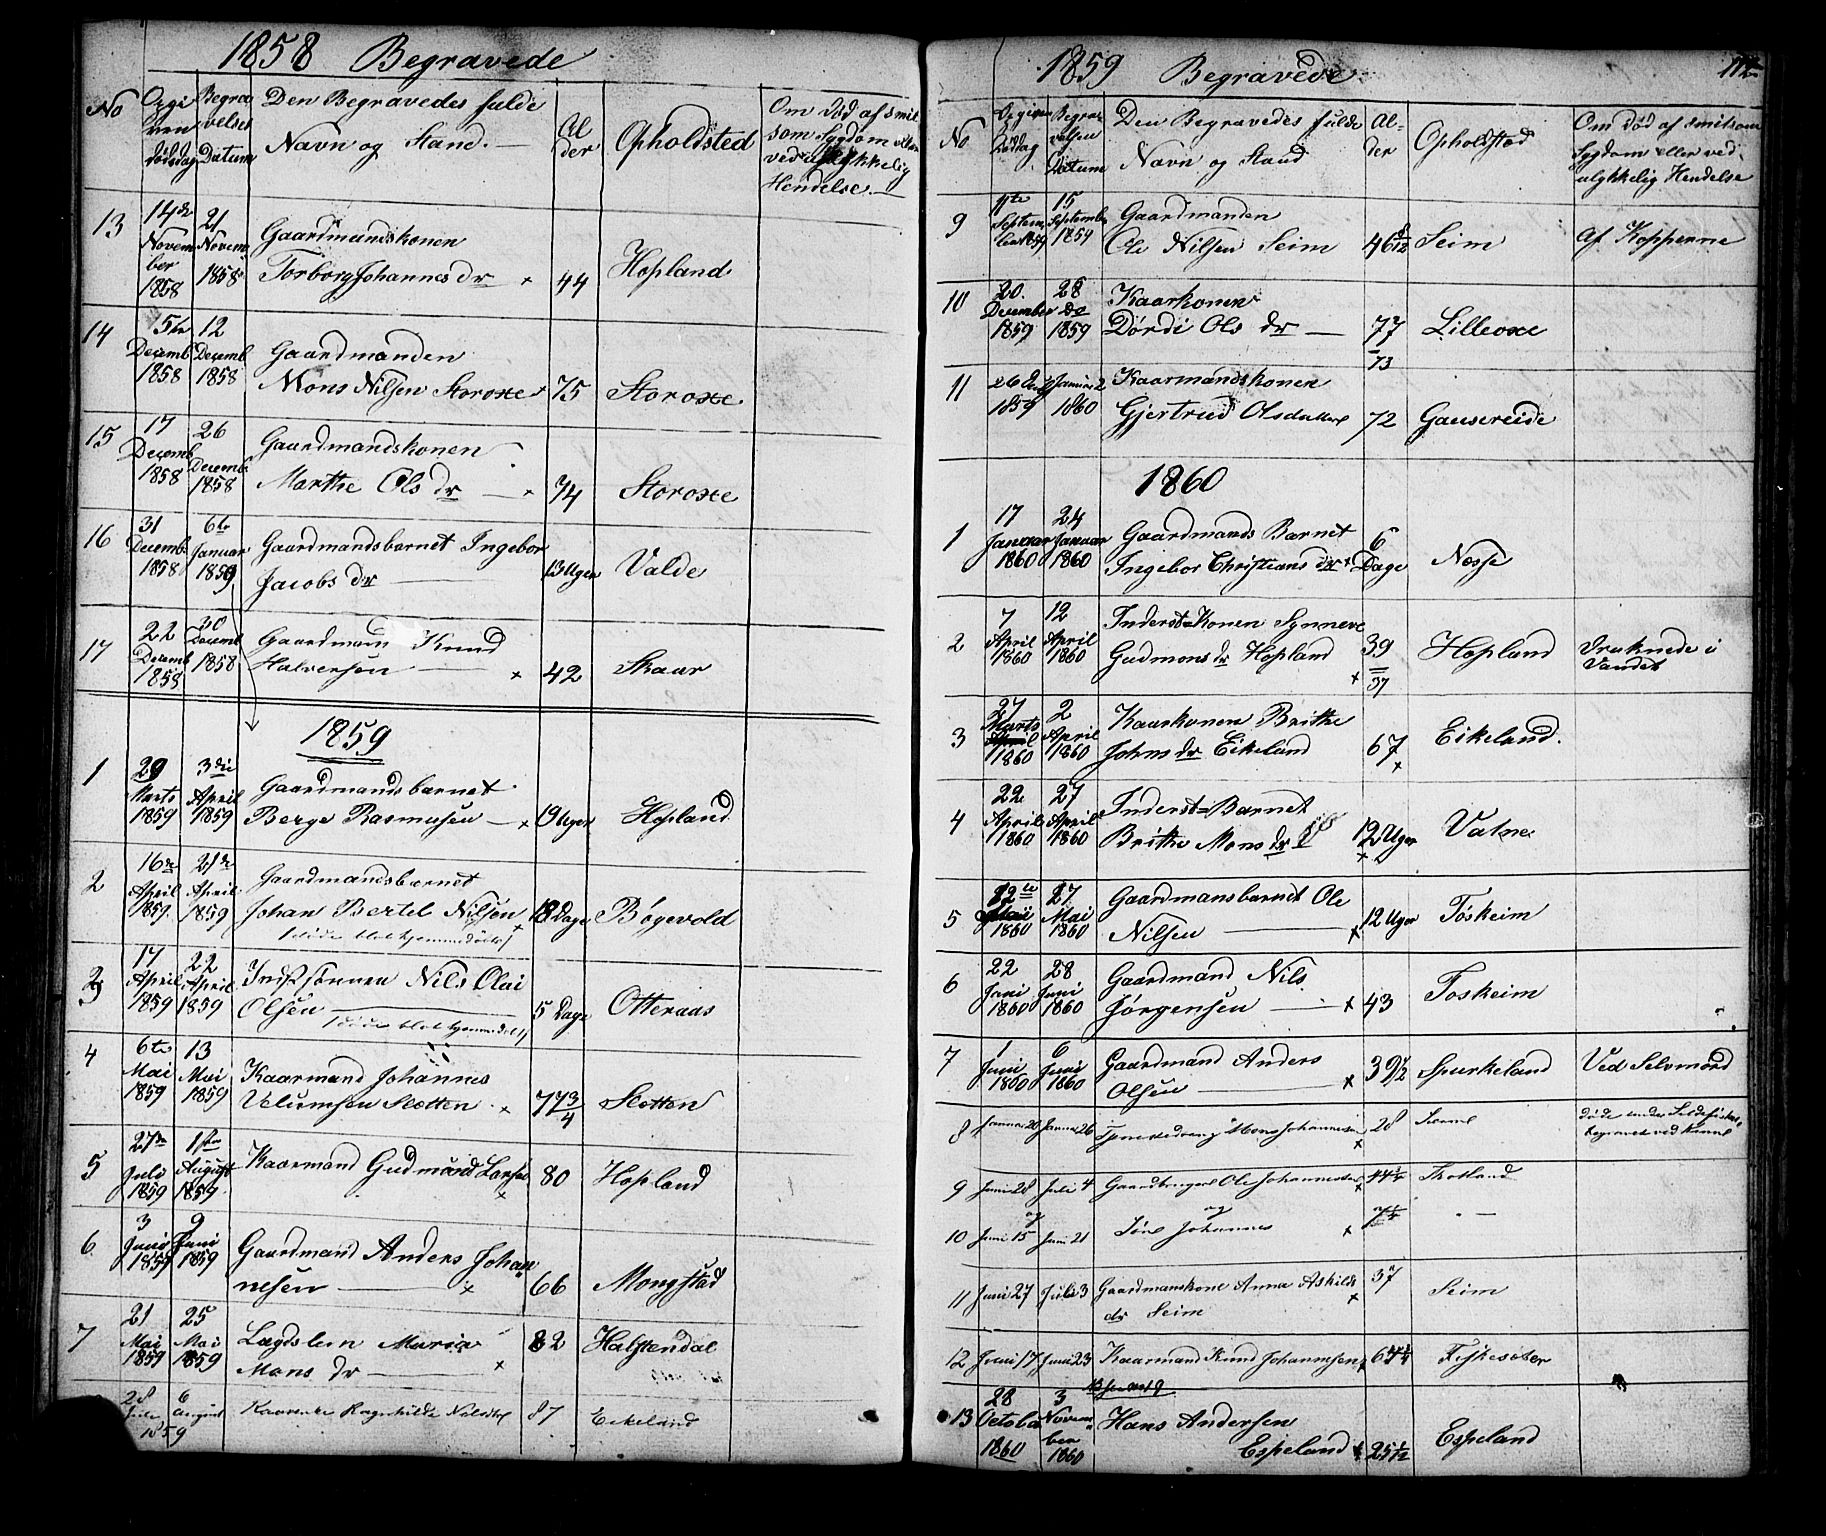 1858 Begravede
No
Opgi
ven
dødsdag
Begra
velses
Datum
Den Begravedes fulde
Navn og Stand.
Al
der
Opholdsted
Om Død af smit
som Sygdom eller
ved ulykkelig
Hendelse.
13
14de
Novem
ber
1858
21
Novem
1858
Gaardmandskonen
Torborg Johannes dr
44
Hopland
14
5te
Decemb
1858
12
Decemb
1858
Gaardmanden
Mons Nilsen Storoxe
75
Storoxe
15
17
Decemb
1858
26
Decemb
1858
Gaardmandskonen
Marthe Ols dr
74
Storoxe
16
31
Decemb
1858
6te
Januar
1859
Gaardmandsbarnet Ingebor
Jacobs dr
13 Uger
Valde
17
22
Decemb
1858
30
Decemb
1858
Gaardmam Knud
Halversen
42
Skaar
1859
1
29
Marts
1859
3die
April
1859
Gaardmandsbarnet
Berge Rasmusen
19 Uger
Hopland
2
16de
April
1859
21de
April
1859
Gaardmandsbarnet
Johan Bertel Nilsen
18 Dage
Bøgevold
døde blot hjemmedøbt
3
17
April
1859
22
April
1859
Indstsønnen Nils Olai
Olsen
5 Dage
Otteraas
døde blot hjemmedøbt
4
6te
Mai
1859
13
Mai
1859
Kaarmand Johannes
Velumsen Sletten
77 3/4
Sletten
5
27de
Juli
1859
1ste
August
1859
Kaarmand Gudmund Larsen
80
Hopland
6
3
Juni
1859
9
Juni
1859
Gaardmand Anders Johan
nesen
66
Mongstad
7
21
Mai
1859
25
Mai
1859
Lægdslem Maria
Mons dr
82
Halstendal
28
Juli
1859
6
August
Kaarenke Ragnhilda Nilsdtr
87
Eikeland
1859 Begravede
112
No
Begra
velsen
Datum
Den Begravedes fulde
Navn og Stand
Al-
der
Opholdstæd
Om Død af smitsom
Sygdom eller ved
ulykkelig Hendelse
9
11te
Septem
ber 1859
15
Septemb
1859
Gaardmanden
Ole Nilsen Seim
46 8/12
Seim
Af Kopperne
10
20
December
1859
28
De
1859
Kaarkonen
Dørdi Ols dr
77
73
Lilleoxe
11
26 De
1859
Januar 2
1860
Kaarmandskonen
Gjertrud Olsdatter
72
Gausereide
1860
1
17
Januar
1860
24
Januar
1860
Gaardmands Barnet
Ingebor Christians dr
6
Dage
Nesse
2
7
April
1860
12
April
1860
Inderst-Konen Synneve
Gudmons dr Hopland
39
37
Hopland
Druknede i
Vandet
3
27
Marts
1860
2
April
1860
Kaarkonen Brithe
Johns dr Eikeland
67
Eikeland.
4
22
April
1860
27
April
1860
Inderst-Barnet
Brithe Mons dr
12 Uger
Vatne
5
22te
Mai
1860
27
Mai
1860
Gaardmansbarnet Ole
Nilsen
12 Uger
Toskeim
6
22
Juni
1860
28
Juni
1860
Gaardmand Nils
Jørgensen
43
Toskeim
7
1
Juni
1860
6
Juni
1860
Gaardmand Anders
Olsen
39 1/2
Spurkeland
Ved Selvmord
8
Januar 20
Januar 26
Tjenestedreng Mons Johannesen
28
døde under Sildefisket
begravet ved Kinn
9
Juni 28
Juli 4
Ole Johannesen
44 1/4
og
og
10
Juni 15
Juni 21
Johannes
7 1/4
11
Juni 27
Juli 3
Gaardmanskone Anna Askilds
dr Seim
37
Seim
12
Juni 17
Juni 23
Kaarmand Knud Johannesen
67 1/4
Fiskesæter
13
28
October
1860
3
Novem
ber
1860
Hans Andersen
Espeland
25 1/12
Espeland